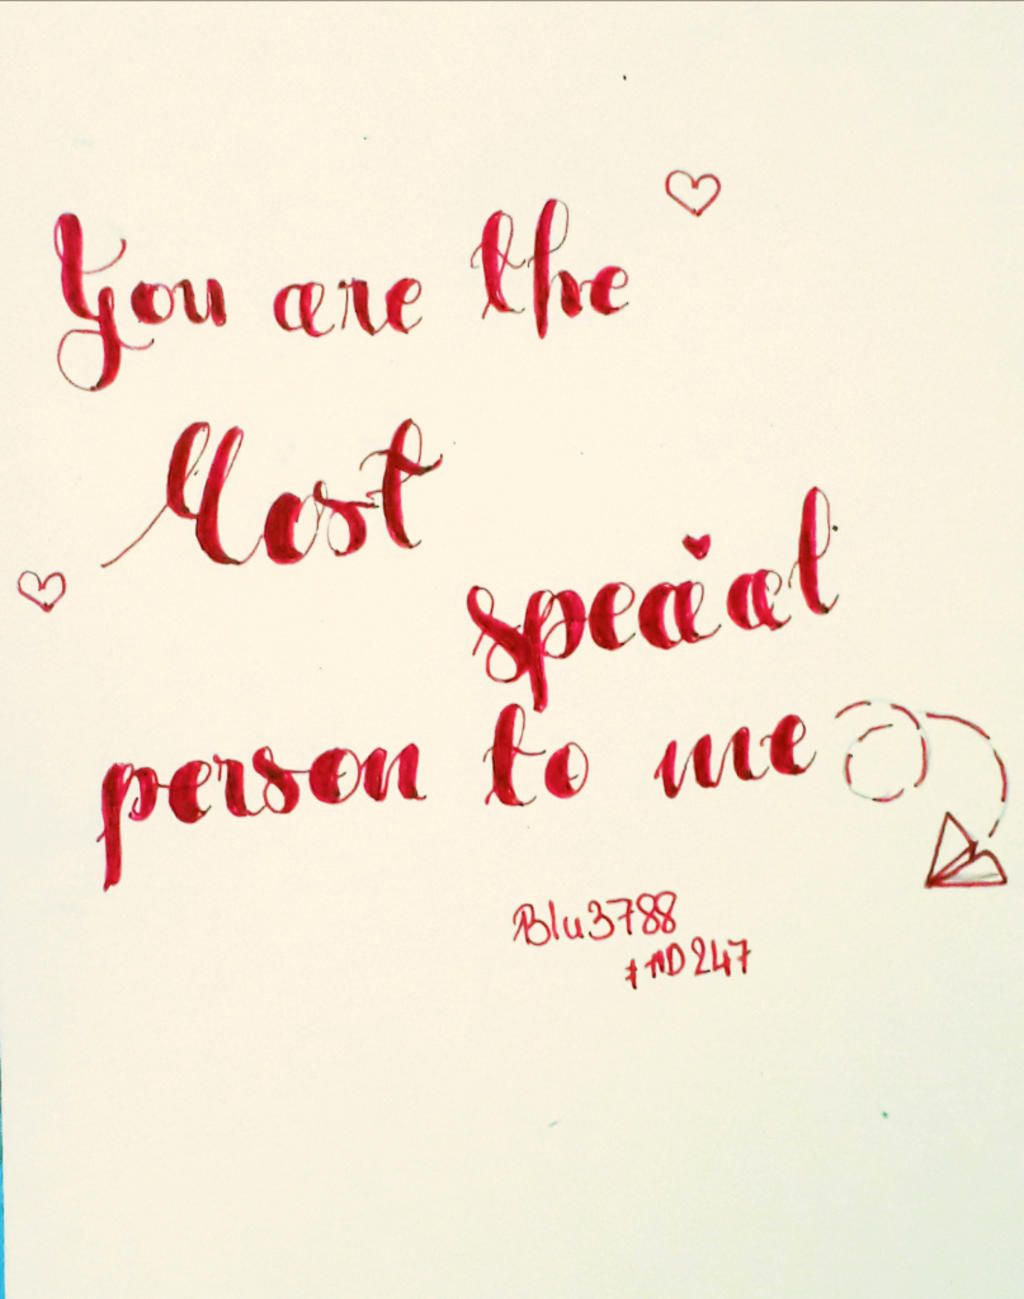 You are the
Most
special
person to me
Blu3788